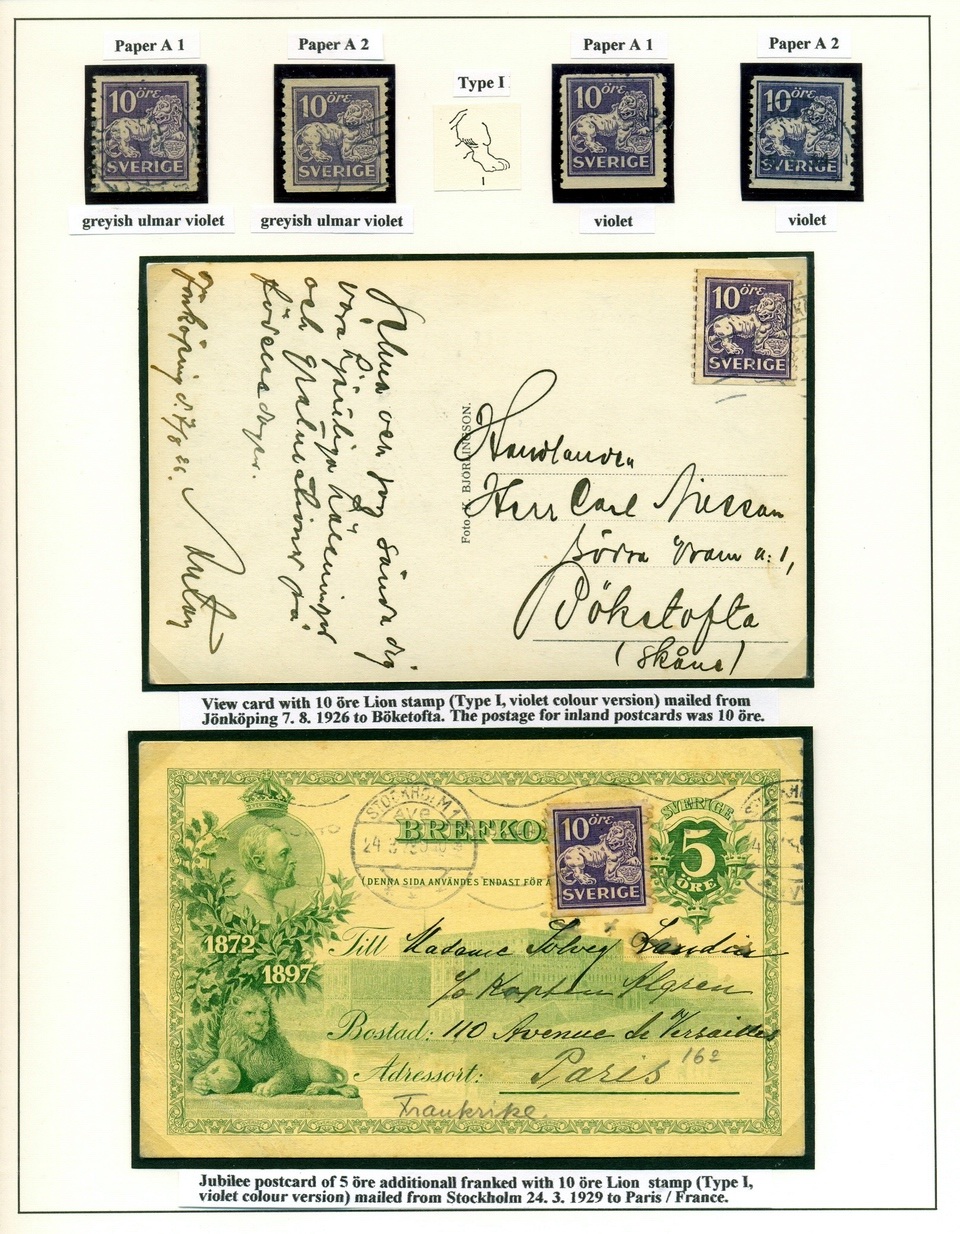 Paper A 1
Paper A 2
Type I
Paper A 1
Paper A 2
10 öre
SVERIGE
10 öre
SVERIGE
1
10 öre
SVERIGE
10 öre
SVERIGE
greyish ulmar violet
greyish ulmar violet
violet
violet
10 öre
SVERIGE
och jag sända dig
våra hjärtliga hälsningar
och gratulationer på
födelsedagen.
Jönköping d. 7/8 26.
Foto K. BJÖRLINGSON.
Handlanden
Herr Carl Nilsson
Södra
Böketofta
(Skåne)
View card with 10 öre Lion stamp (Type I, violet colour version) mailed from
Jönköping 7. 8. 1926 to Böketofta. The postage for inland postcards was 10 öre.
STOCKHOLM 1
24 3
BREFKO
(DENNA SIDA ANVÄNDES ENDAST FÖR A
10 öre
SVERIGE
SVERIGE
5
ÖRE
1872
1897
Till Madame Solveg Landin
c/o Kapten Algren
Bostad: 110 Avenue de Versailles
Adressort: Paris 16e
Frankrike.
Jubilee postcard of 5 öre additionall franked with 10 öre Lion stamp (Type I,
violet colour version) mailed from Stockholm 24. 3. 1929 to Paris / France.